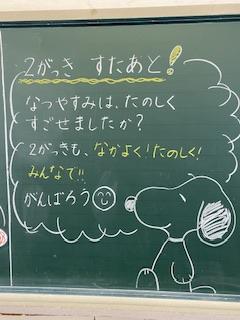 2がっき すたあと!
なつやすみは、たのしく
すごせましたか?
2がっきも、なかよく!たのしく!
みんなで!!
がんばろう